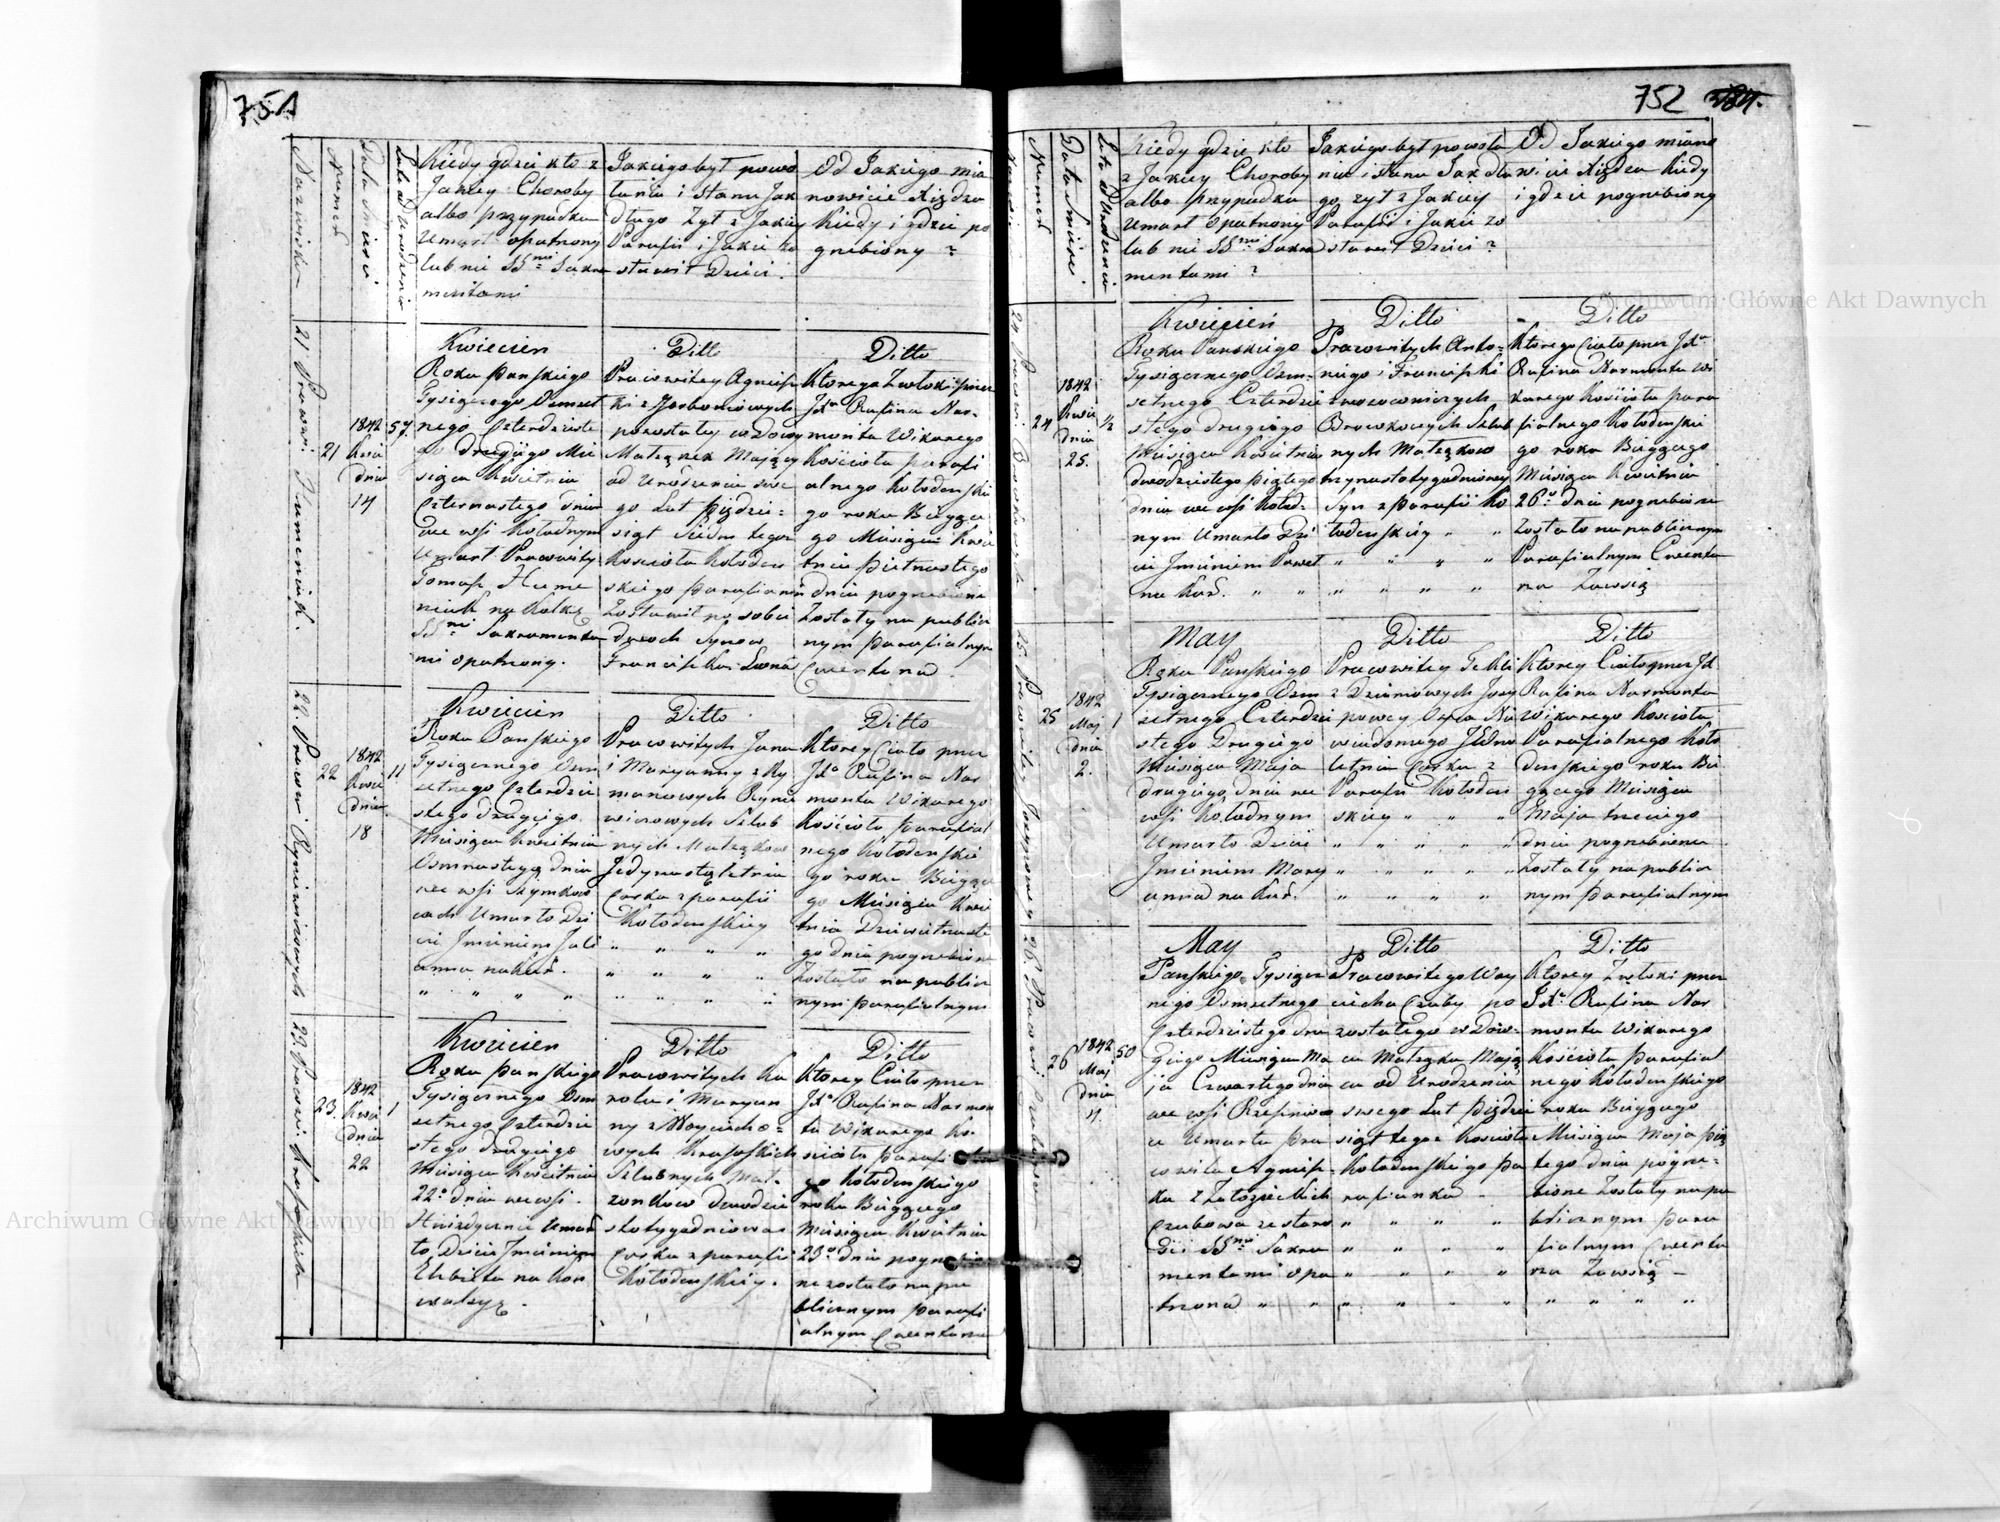 751
Nazwisko
Numer
Data Śmierci
Lata od Urodzenia
Kiedy gdzie kto z
Jakiey Choroby
albo przypadku
Umarł opatrzony
lub nie SSmi Sakra
mentami
Jakiego był powo
łania i stanu Jak
długo żył z Jakiey
Parafii i Jakie zo
stawił Dzieci.
Od Jakiego mia
nowicie Xiędza
Kiedy i gdzie po
grzebiony ?
21
1842
Kwie
dnia
14
57.
Kwiecien
Roku Pańskiego
Tysiącznego Osmset
nego Czterdzieste
go Drugiego Mie
siąca Kwietnia
Czternastego dnia
we wsi Kołodnym
Umarł Pracowity
Tomasz
na Kolkę
SSmi Sakramenta
mi opatrzony.
Ditto
Pracowitey Agniesz
ki z
pozostałey wdowy
Małżonek Mający
od Urodzenia swe
go Lat Piędzie=
siąt Siedm tegoż
Kościoła Kołoden
skiego Parafianin
Zostawił po sobie
dwoch Synow
Franciszka Leona
Ditto
Ktorego Zwłoki przez
JXa Rafina Nar=
monta Wikarego
Kościoła Parafi
alnego Kołodenskie
go roku Bieżące
go Miesiąca Kwie
tnia Pietnastego
dnia pogrzebione
Zostały na publicz
nym Parafialnym
Cmentarza
22. Pracow: Rymiewiczowych
22
1842
Kwie
dnia
18
11
Kwiecien
Roku Pańskiego
Tysiącznego Osm
setnego Czterdzie
stego drugiego
Miesiąca Kwietnia
Osmnastego dnia
we wsi Szymkow
cach Umarło Dzi
cie Jmieniem Juli
anna na Kur.
" " " "
Ditto
Pracowitych Jana
i Maryanny z Ry
manowych
Szlub
nych Małżąkow
Jedynastoletnia
Corka z parafii
Kołodenskiey
" " " "
" " " "
" " " "
Ditto
Ktorey Ciało przez
JXa Rafina Nar
monta Wikarego
Kościoła Parafial
nego Kołodenskie
go roku Bieżące
go Miesiąca Kwie
tnia Dziewietnaste
go dnia pogrzebione
Zostało na publicz
nym Parafialnym
23.
1842
Kwie
dnia
22
1
Kwiecien
Roku Pańskiego
Tysiącznego Osm
setnego Czterdzie
stego drugiego
Miesiąca Kwietnia
22o dnia we wsi
Umar
ło Dziecie Jmieniem
Elzbieta na Kon
wulsyą.
Ditto
Pracowitych Ka
rola i Maryan
ny z Woyciecho=
wych
Szlubnych Mał=
zonkow dwudzie
stotygodniowa
Corka z parafii
Kołodenskiey.
Ditto
Ktorey Ciało przez
JXa Rafina Narmon
ta Wikarego Ko=
ścioła Parafi
go Kołodenskiego
roku Bieżącego
Miesiąca Kwietnia
23o dnia pogrzebio
ne zostało na pu
blicznym Parafi
alnym Cmentarzu
752
Numer
Data Śmierci
Lata od Urodzenia
Kiedy gdzie kto
z Jakiey Choroby
albo Przypadku
umarł opatrzony
lub nie SSmi Sakra
mentami ?
Jakiego był powoła
nia i stanu Jak dłu
go żył z Jakiey
Parafii i Jakie zo
stawił Dzieci ?
Od Jakiego miano
wicie Xiędza Kiedy
i gdzie pogrzebiony
24
1842
Kwie
dnia
25.
1/2
Kwiecień
Roku Pańskiego
Tysiącznego Osm=
setnego Czterdzie
stego drugiego
Miesiąca Kwietnia
dwudziestego Piątego
dnia we wsi Kołod=
nym Umarło Dzi
cie Jmieniem Paweł
na Kur. " "
Ditto
Pracowitych Anto=
niego i Franciszki
Szlub
nych Małżąkow
trzynastotygodniowy
Syn z Parafii Ko
łodenskiey " "
" " " "
" " " "
Ditto
Ktorego Ciało przez JXa
Rafina Narmonta Wi
karego Kościoła para
fialnego Kołodenskie
go roku Bieżącego
Miesiąca Kwietnia
26o dnia pogrzebione
Zostało na publicznym
Parafialnym Cmenta
rzu Zawsią
25
1842
Maj
dnia
2.
1
May
Roku Pańskiego
Tysiącznego Osm
setnego Czterdzie
stego Drugiego
Miesiąca Maja
drugiego dnia we
wsi Kołodnym
Umarło Dziecie
Jmieniem Mary
anna na Kur.
Ditto
Pracowitey Tekli
z
powey Oyca Nie
wiadomego Jedno
letnia Corka z
Parafii Kołoden
skiey " " "
" " " "
" " " "
" " " "
Ditto
Ktorey Ciało przez JX
Rafina Narmonta
Wikarego Kościoła
Parafialnego Koło
denskiego roku Bie
żącego Miesiąca
Maja trzeciego
dnia pogrzebione
Zostały na publicz
nym Parafialnym
26
1842
Maj
dnia
4.
50
May
Pańskiego Tysiącz
nego Osmsetnego
Czterdziestego Dru
giego Miesiąca Ma
ja Czwartego dnia
we wsi
Umarła Pra
cowita Agniesz=
ka z
Czubowa ze staro
ści SSmi Sakra
mentami opa
trzona " "
Ditto
Pracowitego Woy
ciecha Czuby po
zostałego wdow=
ca Małżąka Mają
ca od Urodzenia
swego Lat Pięćdzie
siąt tegoż Kościoła
Kołodenskiego Pa
rafianka -
" " " "
" " " "
" " " "
" " " "
Ditto
Ktorey Zwłoki przez
JXa Rafina Nar
monta Wikarego
Kościoła Parafial
nego Kołodenskiego
roku Bieżącego
Miesiąca Maja Pią
tego dnia pogrze=
bione Zostały na pu
blicznym Para
fialnym Cmenta
rzu Zawsią -
" " " "
Archiwum Główne Akt Dawnych
Archiwum Główne Akt Dawnych